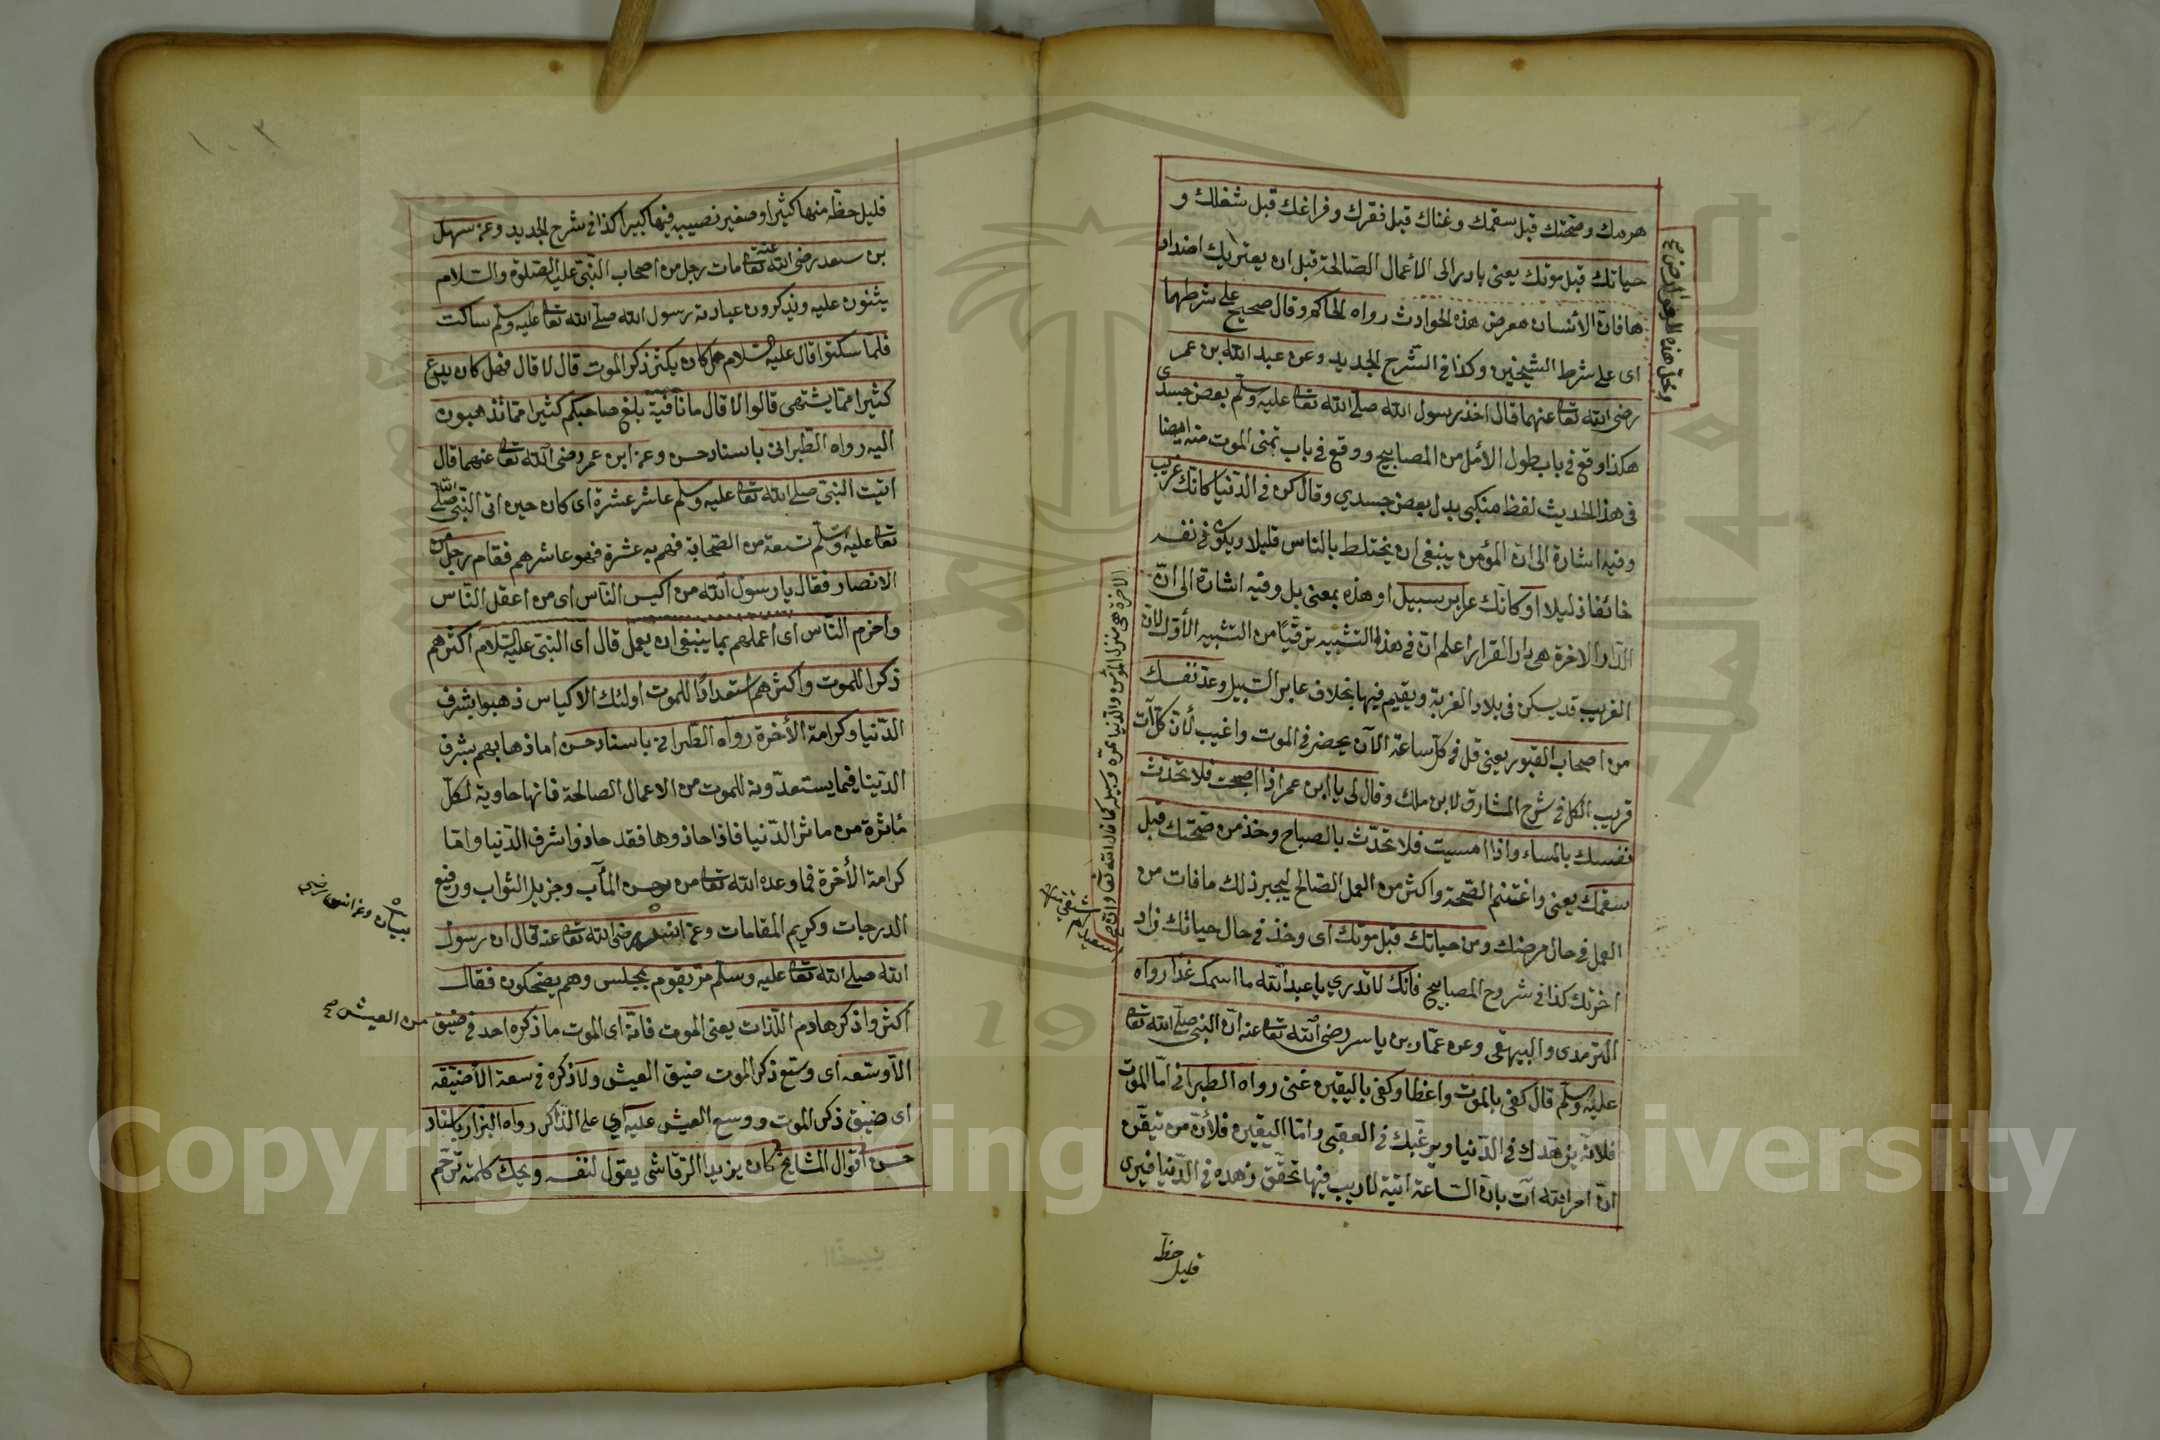 هرمك وصحتك قبل سقمك وغناك قبل فقرك وفراغك قبل شغلك و
حياتك قبل موتك يعنى بادر الى الأعمال الصالحة قبل ان يعتريك اضداد
ها فان الأنسان معرض هذه الحوادث رواه الحاكم وقال صحيح على شرطهما
اى على شرط الشيخين وكذا فى الشرح الجديد وعن عبد الله بن عمر
رضى الله تعا عنهما قال اخذ رسول الله صلى الله تعا عليه وسلم بعض جسدى
هكذا وقع فى باب طول الأمل من المصابيح ووقع فى باب تمنى الموت منه ايضا
فى هذا الحديث لفظ منكبى بدل بعض جسدي وقال كن فى الدنيا كانك غريب
وفيه اشارة الى ان المؤمن ينبغى ان يختلط بالناس قليلا ويكون فى نفسه
خائفا ذليلا او كانك عابر سبيل او هذه بمعنى بل وفيه اشارة الى ان
الدار الاخرة هى دار القرار اعلم ان فى هذا التشبيه ترقيًا من التشبيه الأول لان
الغريب قد يسكن فى بلاد الغربة ويقيم فيها بخلاف عابر السبيل وعد نفسك
من اصحاب القبور يعنى قل فى كل ساعة الآن يحضر فى الموت واغيب لأن كل آت
قريب الكل فى شرح المشارق لابن ملك وقال لى يا ابن عمر اذا اصبحت فلا تحدث
نفسك بالمساء واذا امسيت فلا تحدث بالصباح وخذ من صحتك قبل
سقمك يعنى واغتنم الصحة واكثر من العمل الصالح ليجبر ذلك ما فات من
العمل فى حال مرضك ومن حياتك قبل موتك اى وخذ فى حال حياتك زاد
اخرتك كذا فى شروح المصابيح فانك لا تدري يا عبد الله ما اسمك غدًا رواه
الترمدى والبيهقى وعن عمار بن ياسر رضى الله تعا عنه ان النبى صلى الله تعا
عليه وسلم قال كفى بالموت واعظا وكفى باليقين غنى رواه الطبرانى اما الموت
فلانه يزهدك فى الدنيا ويرغبك فى العقبى واما اليقين فلأن من تيقن
ان امر الله آت بان الساعة اتية لا ريب فيها تحقق زهده فى الدنيا فيرى
قليل حظه
الاخرة هى منزل المؤمن والدنيا ممره وسبيله كما قال الله تعا وان
١٠٢
قليل حظه منها كثيرا وصغير نصيبه فيها كبيرا كذا فى شرح الجديد وعن سهل
بن سعد رضى الله تعا عنه مات رجل من اصحاب النبى عليه الصلوة والسلام
يثنون عليه ويذكرون عبادته رسول الله صلى الله تعا عليه وسلم ساكت
فلما سكتوا قال عليه السلام هل كان يكثر ذكر الموت قال لا قال فهل كان يدع
كثيرا مما يشتهى قالوا لا قال ما نافية بلغ صاحبكم كثيرا مما تذهبون
اليه رواه الطبرانى باسناد حسن وعن ابن عمر رضى الله تعا عنهما قال
اتيت النبى صلى الله تعا عليه وسلم عاشر عشرة اى كان حين اتى النبى صلى الله
تعا عليه وسلم تسعة من الصحابة فهم به عشرة فهو عاشرهم فقام رجل من
الانصار فقال يا رسول الله من اكيس الناس اى من اعقل الناس
واحزم الناس اى اعملهم بما ينبغى ان يعمل قال اى النبى عليه السلام اكثرهم
ذكرا للموت واكثرهم استعدادًا للموت اولئك الاكياس ذهبوا بشرف
الدنيا وكرامة الأخرة رواه الطبرانى باسناد حسن اما ذهابهم بشرف
الدنيا فيما يستعدونه للموت من الاعمال الصالحة فانها حاوية لكل
مأثرة من ماثر الدنيا فاذا حاذوها فقد حاذوا شرف الدنيا واما
كرامة الأخرة فما وعده الله تعا من حسن المآب وجزيل الثواب ورفيع
الدرجات وكريم المقامات وعن انس رضى الله تعا عنه قال ان رسول
الله صلى الله تعا عليه وسلم مر بقوم بمجلس وهم يضحكون فقال
اكثروا ذكر هادم اللذات يعنى الموت فانه اى الموت ما ذكره احد فى ضيق
من العيش صح
الا وسعه اى وسع ذكر الموت ضيق العيش ولا ذكره فى سعة الا ضيقه
اى ضيق ذكر الموت ووسع العيش عليه اي على الذاكر رواه البزار باسناد
حسن اقوال المشايخ كان يزيد الرقاشى يقول لنفسه ويحك كلمة ترحم
Copyright © King Saud University